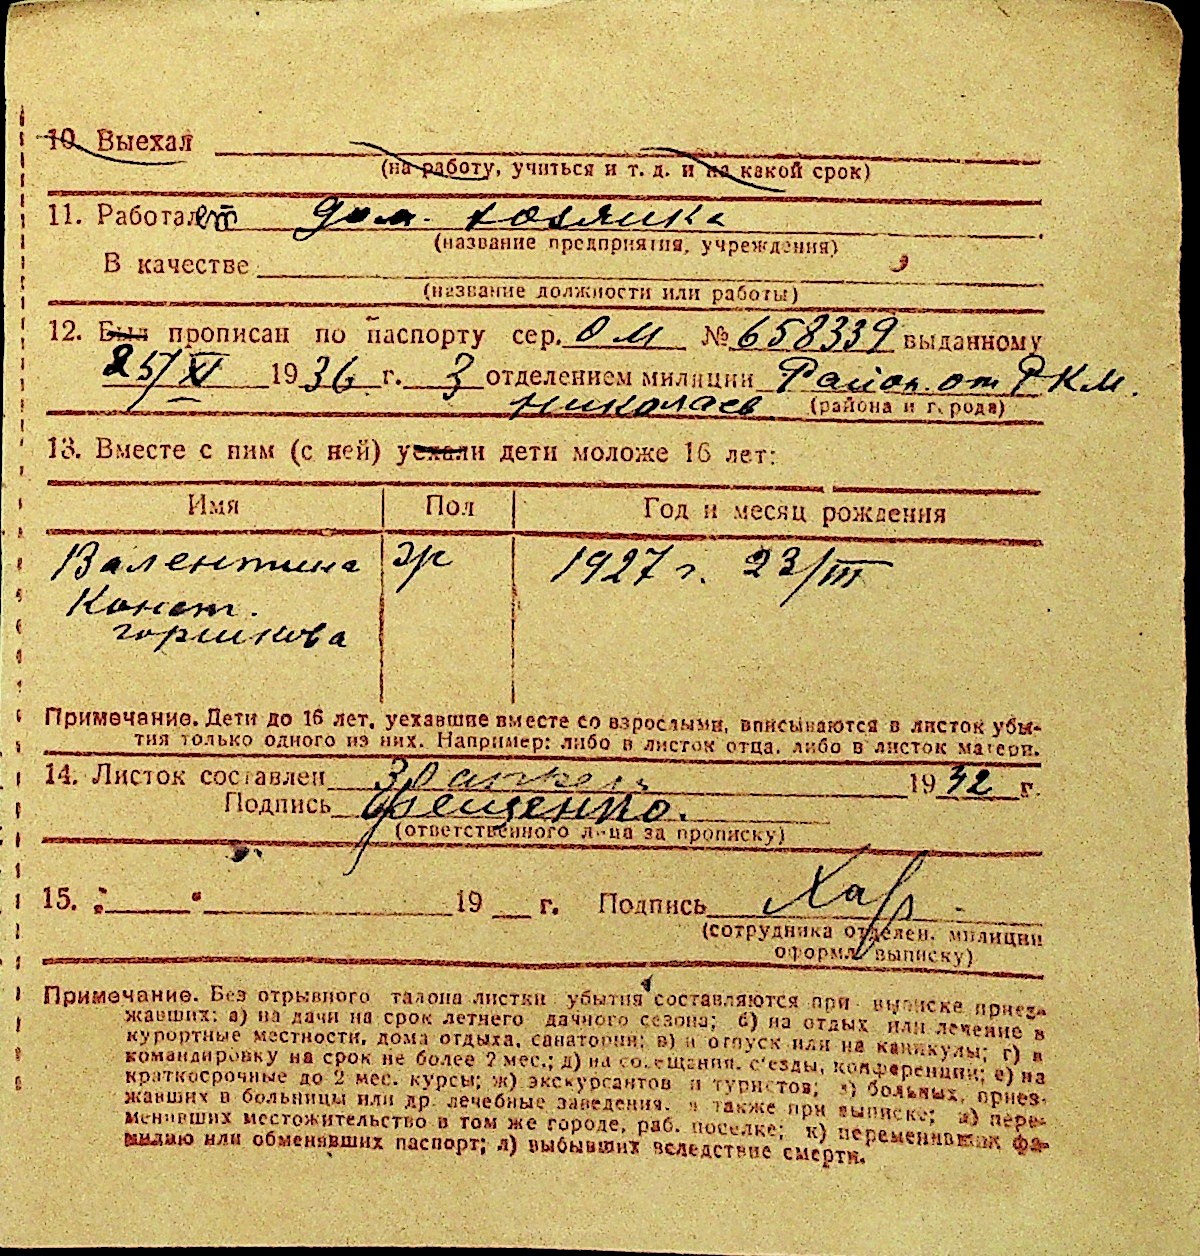 10. Выехал
(на работу, учиться и т. д. и на какой срок)
11. Работает дом. хозяйка
(название предприятия, учреждения)
В качестве
(название должности или работы)
12. Был прописан по паспорту сер. ОМ № 658339 выданному
25/XI 1936 г. 3 отделением милиции Район. от РКМ.
Николаев (района и города)
13. Вместе с ним (с ней) уехали дети моложе 16 лет:
Имя Пол Год и месяц рождения
Валентина ж 1927 г. 23/III
Конст.
Горшкова
Примечание. Дети до 16 лет, уехавшие вместе со взрослыми, вписываются в листок убы-
тия только одного из них. Например: либо в листок отца, либо в листок матери.
14. Листок составлен 30 апрель 1942 г.
Подпись
(ответственного лица за прописку)
15. 19 г. Подпись Хар
(сотрудника отделен. милиции
оформл. выписку)
Примечание. Без отрывного талона листки убытия составляются при выписке приез-
жавших: а) на дачи на срок летнего дачного сезона; б) на отдых или лечение в
курортные местности, дома отдыха, санатории; в) в отпуск или на каникулы; г) в
командировку на срок не более 2 мес.; д) на совещания, с'езды, конференции; е) на
краткосрочные до 2 мес. курсы; ж) экскурсантов и туристов; з) больных, приез-
жавших в больницы или др. лечебные заведения, а также при выписке; и) пере-
менивших местожительство в том же городе, раб. поселке; к) переменивших фа-
милию или обменявших паспорт; л) выбывших вследствие смерти.